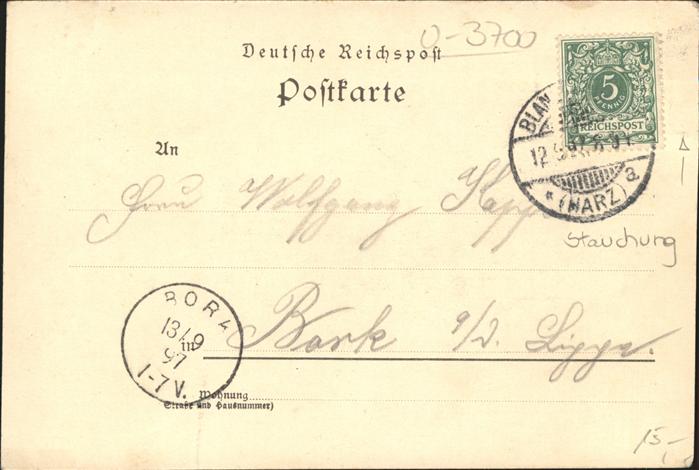 Deutsche Reichspost
0-3700
Postkarte
5
PFENNIG
REICHSPOST
BLAN
12 9 97. 8-9 N
* (HARZ) a
An
Wolfgang
Stauchung
BORK
13/9
97
1-7 V.
in Bork a/d. Lippe.
Wohnung
(Straße und Hausnummer)
15,-